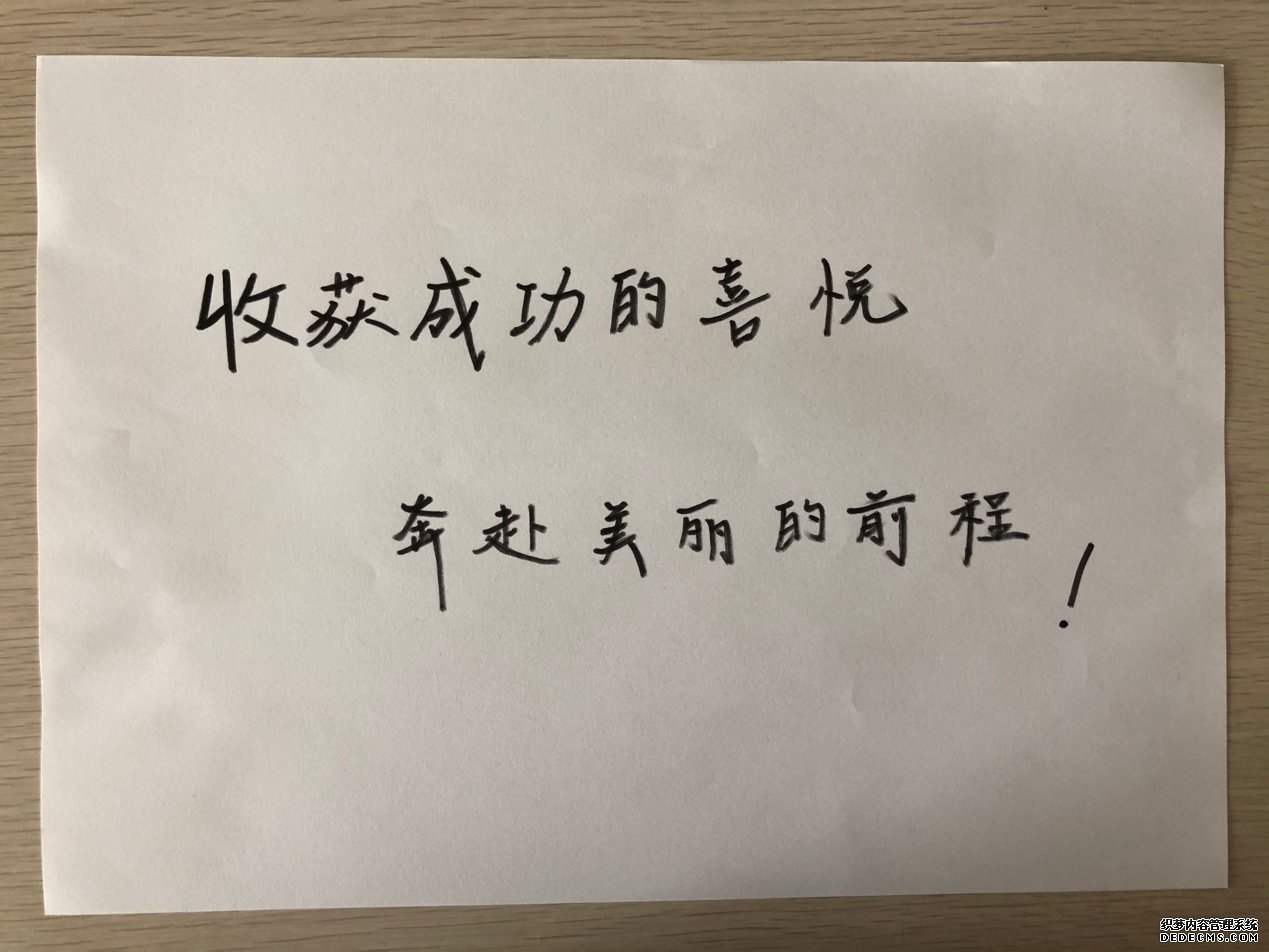 收获成功的喜悦
奔赴美丽的前程!
织梦内容管理系统
DEDECMS.COM